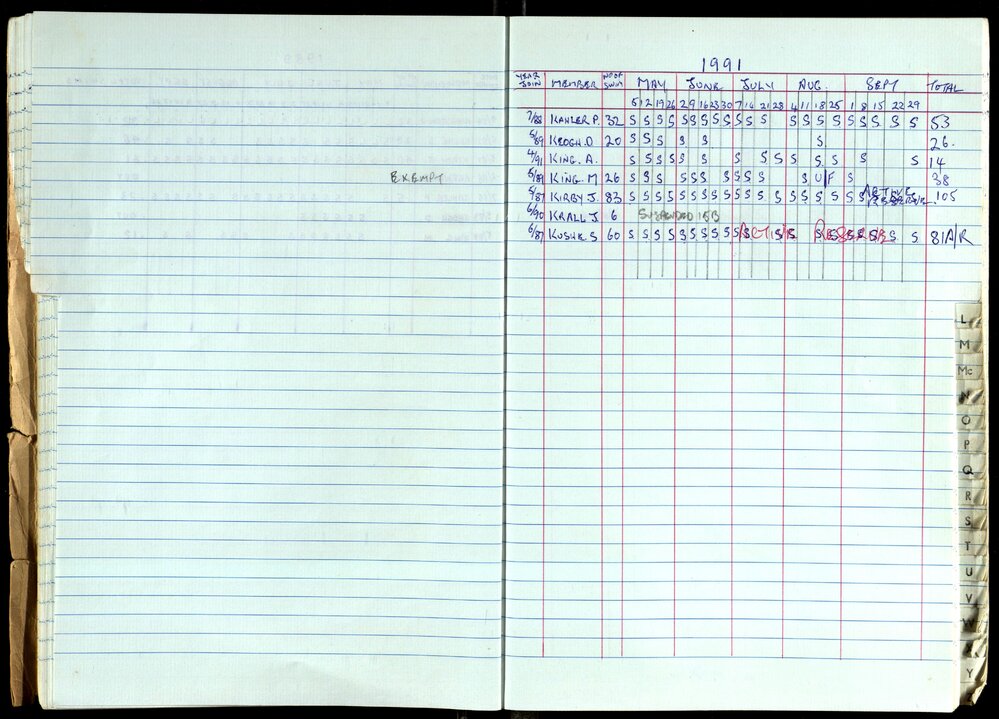 1991
YEAR JOIN MEMBER NO OF SWIM MAY JUNE JULY AUG. SEPT TOTAL
5 12 19 26 2 9 16 23 30 7 14 21 28 4 11 18 25 1 8 15 22 29
7/88 KAHLER P. 32 S S S S S S S S S S S S S S S S S S S S S 53
5/89 KEOGH. D 20 S S S S S S 26.
4/91 KING. A. S S S S S S S S S S S S S S 14
EXEMPT
5/89 KING. M 26 S S S S S S S S S S S U/F S 38
5/87 KIRBY J. 83 S S S S S S S S S S S S S S S S S S S ACTIVE RESERVE. 105
6/90 KRALL J. 6 SUSPENDED 15B
6/87 KUSHE S 60 S S S S S S S S S S S S S S S S S S S S S ACTIVE RESERVE 81 A/R
L
M
Mc
N
O
P
Q
R
S
T
U
V
W
Y